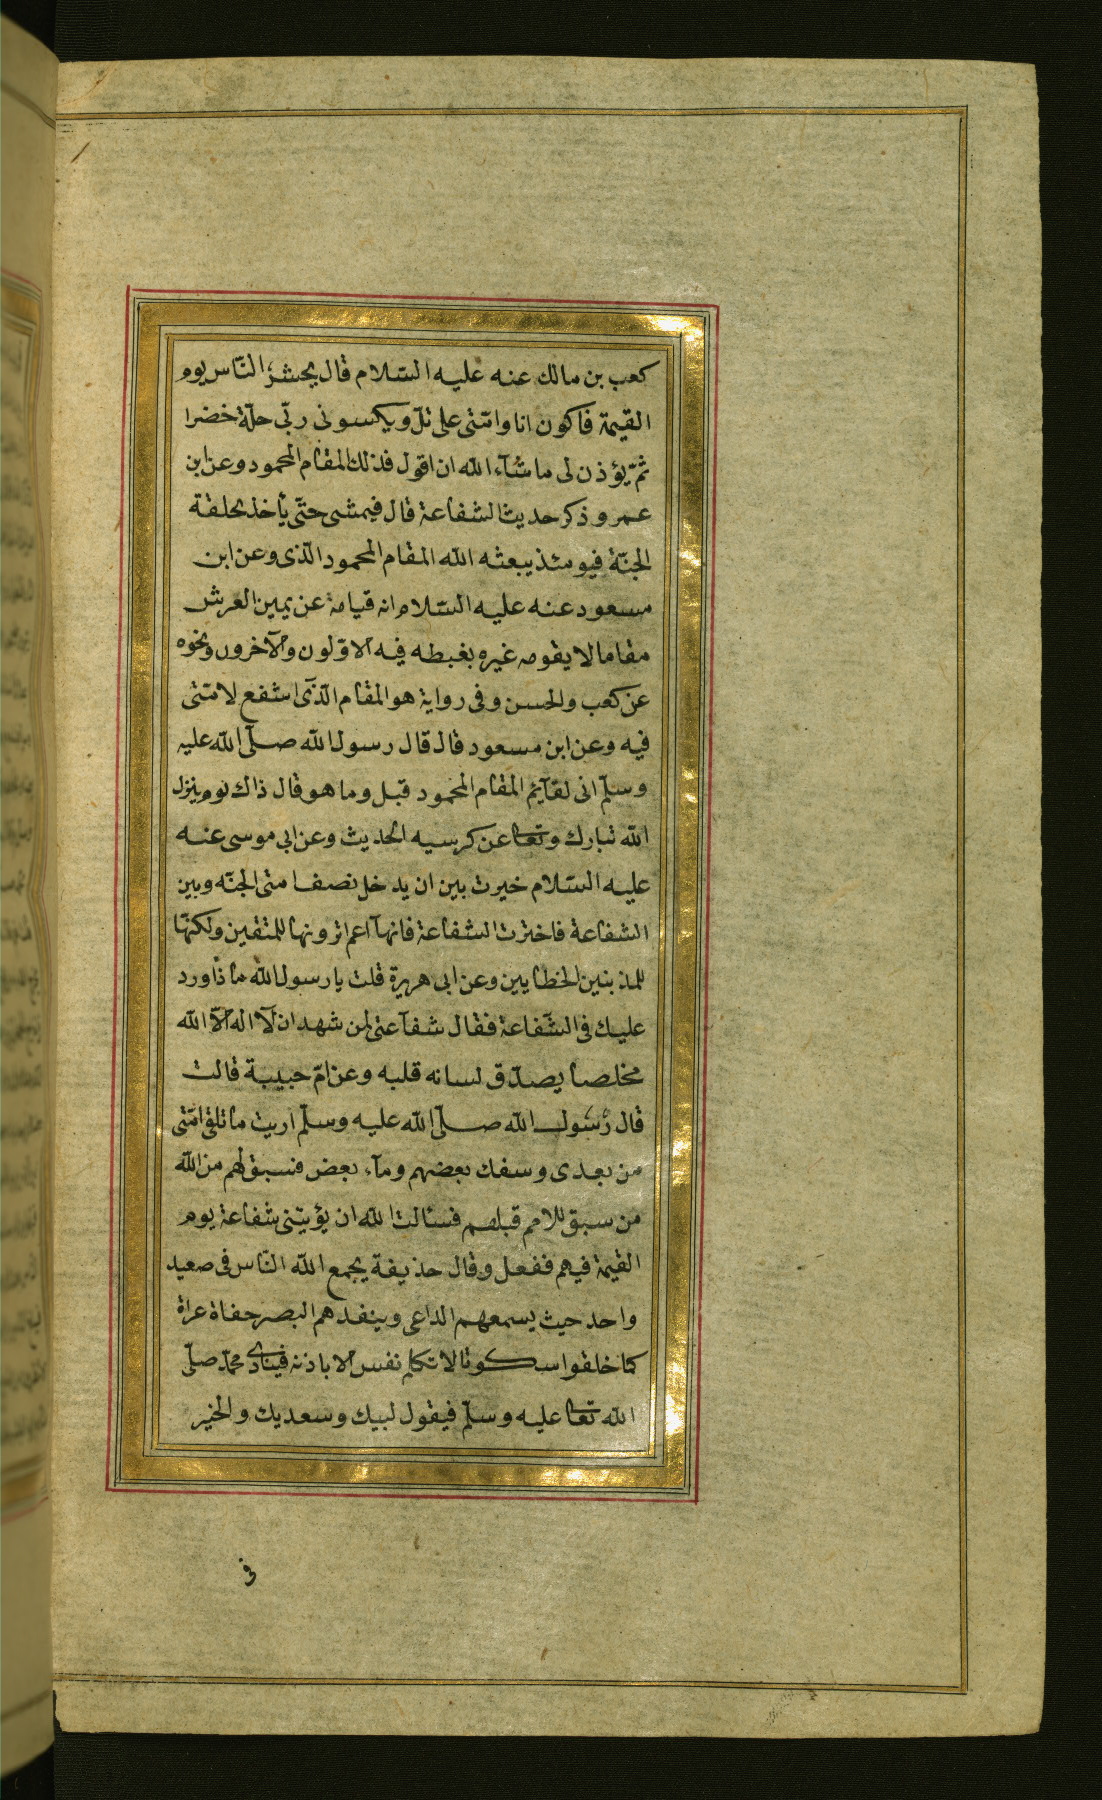 كعب بن مالك عنه عليه السّلام قال يحشر النّاس يوم
القيمة فاكون انا وامّتى على تلّ ويكسونى ربّى حلّة خضرا
ثمّ يؤذن لى ما شآء الله ان اقول فذلك المقام المحمود وعن ابن
عمر وذكر حديث الشفاعة قال فيمشى حتّى يأخذ بحلقة
الجنّة فيومئذ يبعثه الله المقام المحمود الّذى وعن ابن
مسعود عنه عليه السّلام انه قيامة عن يمين العرش
مقاما لا يقومه غيره يغبطه فيه الاوّلون والآخرون ونحوه
عن كعب والحسن وفى رواية هو المقام الّذى اشفع لامّتى
فيه وعن ابن مسعود قال قال رسول الله صلّى الله عليه
وسلّم انى لقآيم المقام المحمود قبل وما هو قال ذاك يوم ينزل
الله تبارك وتعا عن كرسيه الحديث وعن ابى موسى عنه
عليه السّلام خيرت بين ان يدخل نصف امتى الجنّه وبين
الشفاعة فاخترت الشفاعة فانهآ اعم اترونها للمتقين ولكنّها
للمذنبين الخطايين وعن ابى هريرة قلت يا رسول الله ماذا ورد
عليك فى الشّفاعة فقال شفآعتى لمن شهد ان لآ اله الّا الله
مخلصا يصدّق لسانه قلبه وعن امّ حبيبة قالت
قال رسول الله صلّى الله عليه وسلّم اريت ما تلقى امّتى
من بعدى وسفك بعضهم دمآء بعض فسبق لهم من الله
من سبق للامم قبلهم فسئالت الله ان يؤتينى شفاعة يوم
القيمة فيهم ففعل وقال حذيفة يجمع الله النّاس فى صعيد
واحد حيث يسمعهم الداعى وينفدهم البصر حفاة عراة
كما خلقوا سكوتا لا تكلم نفس الا باذنه فينادى محمّد صلّى
الله تعا عليه وسلّم فيقول لبيك وسعديك والخير
فى